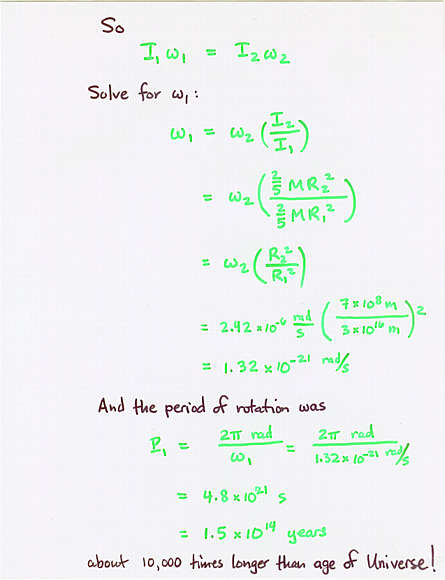 So
I₁ω₁ = I₂ω₂
Solve for ω₁:
ω₁ = ω₂ (I₂/I₁)
= ω₂ (2/5 MR₂² / 2/5 MR₁²)
= ω₂ (R₂²/R₁²)
= 2.42 × 10⁻⁶ rad/s (7 × 10⁸ m / 3 × 10¹⁶ m)²
= 1.32 × 10⁻²¹ rad/s
And the period of rotation was
P₁ = 2π rad / ω₁ = 2π rad / 1.32 × 10⁻²¹ rad/s
= 4.8 × 10²¹ s
= 1.5 × 10¹⁴ years
about 10,000 times longer than age of Universe!